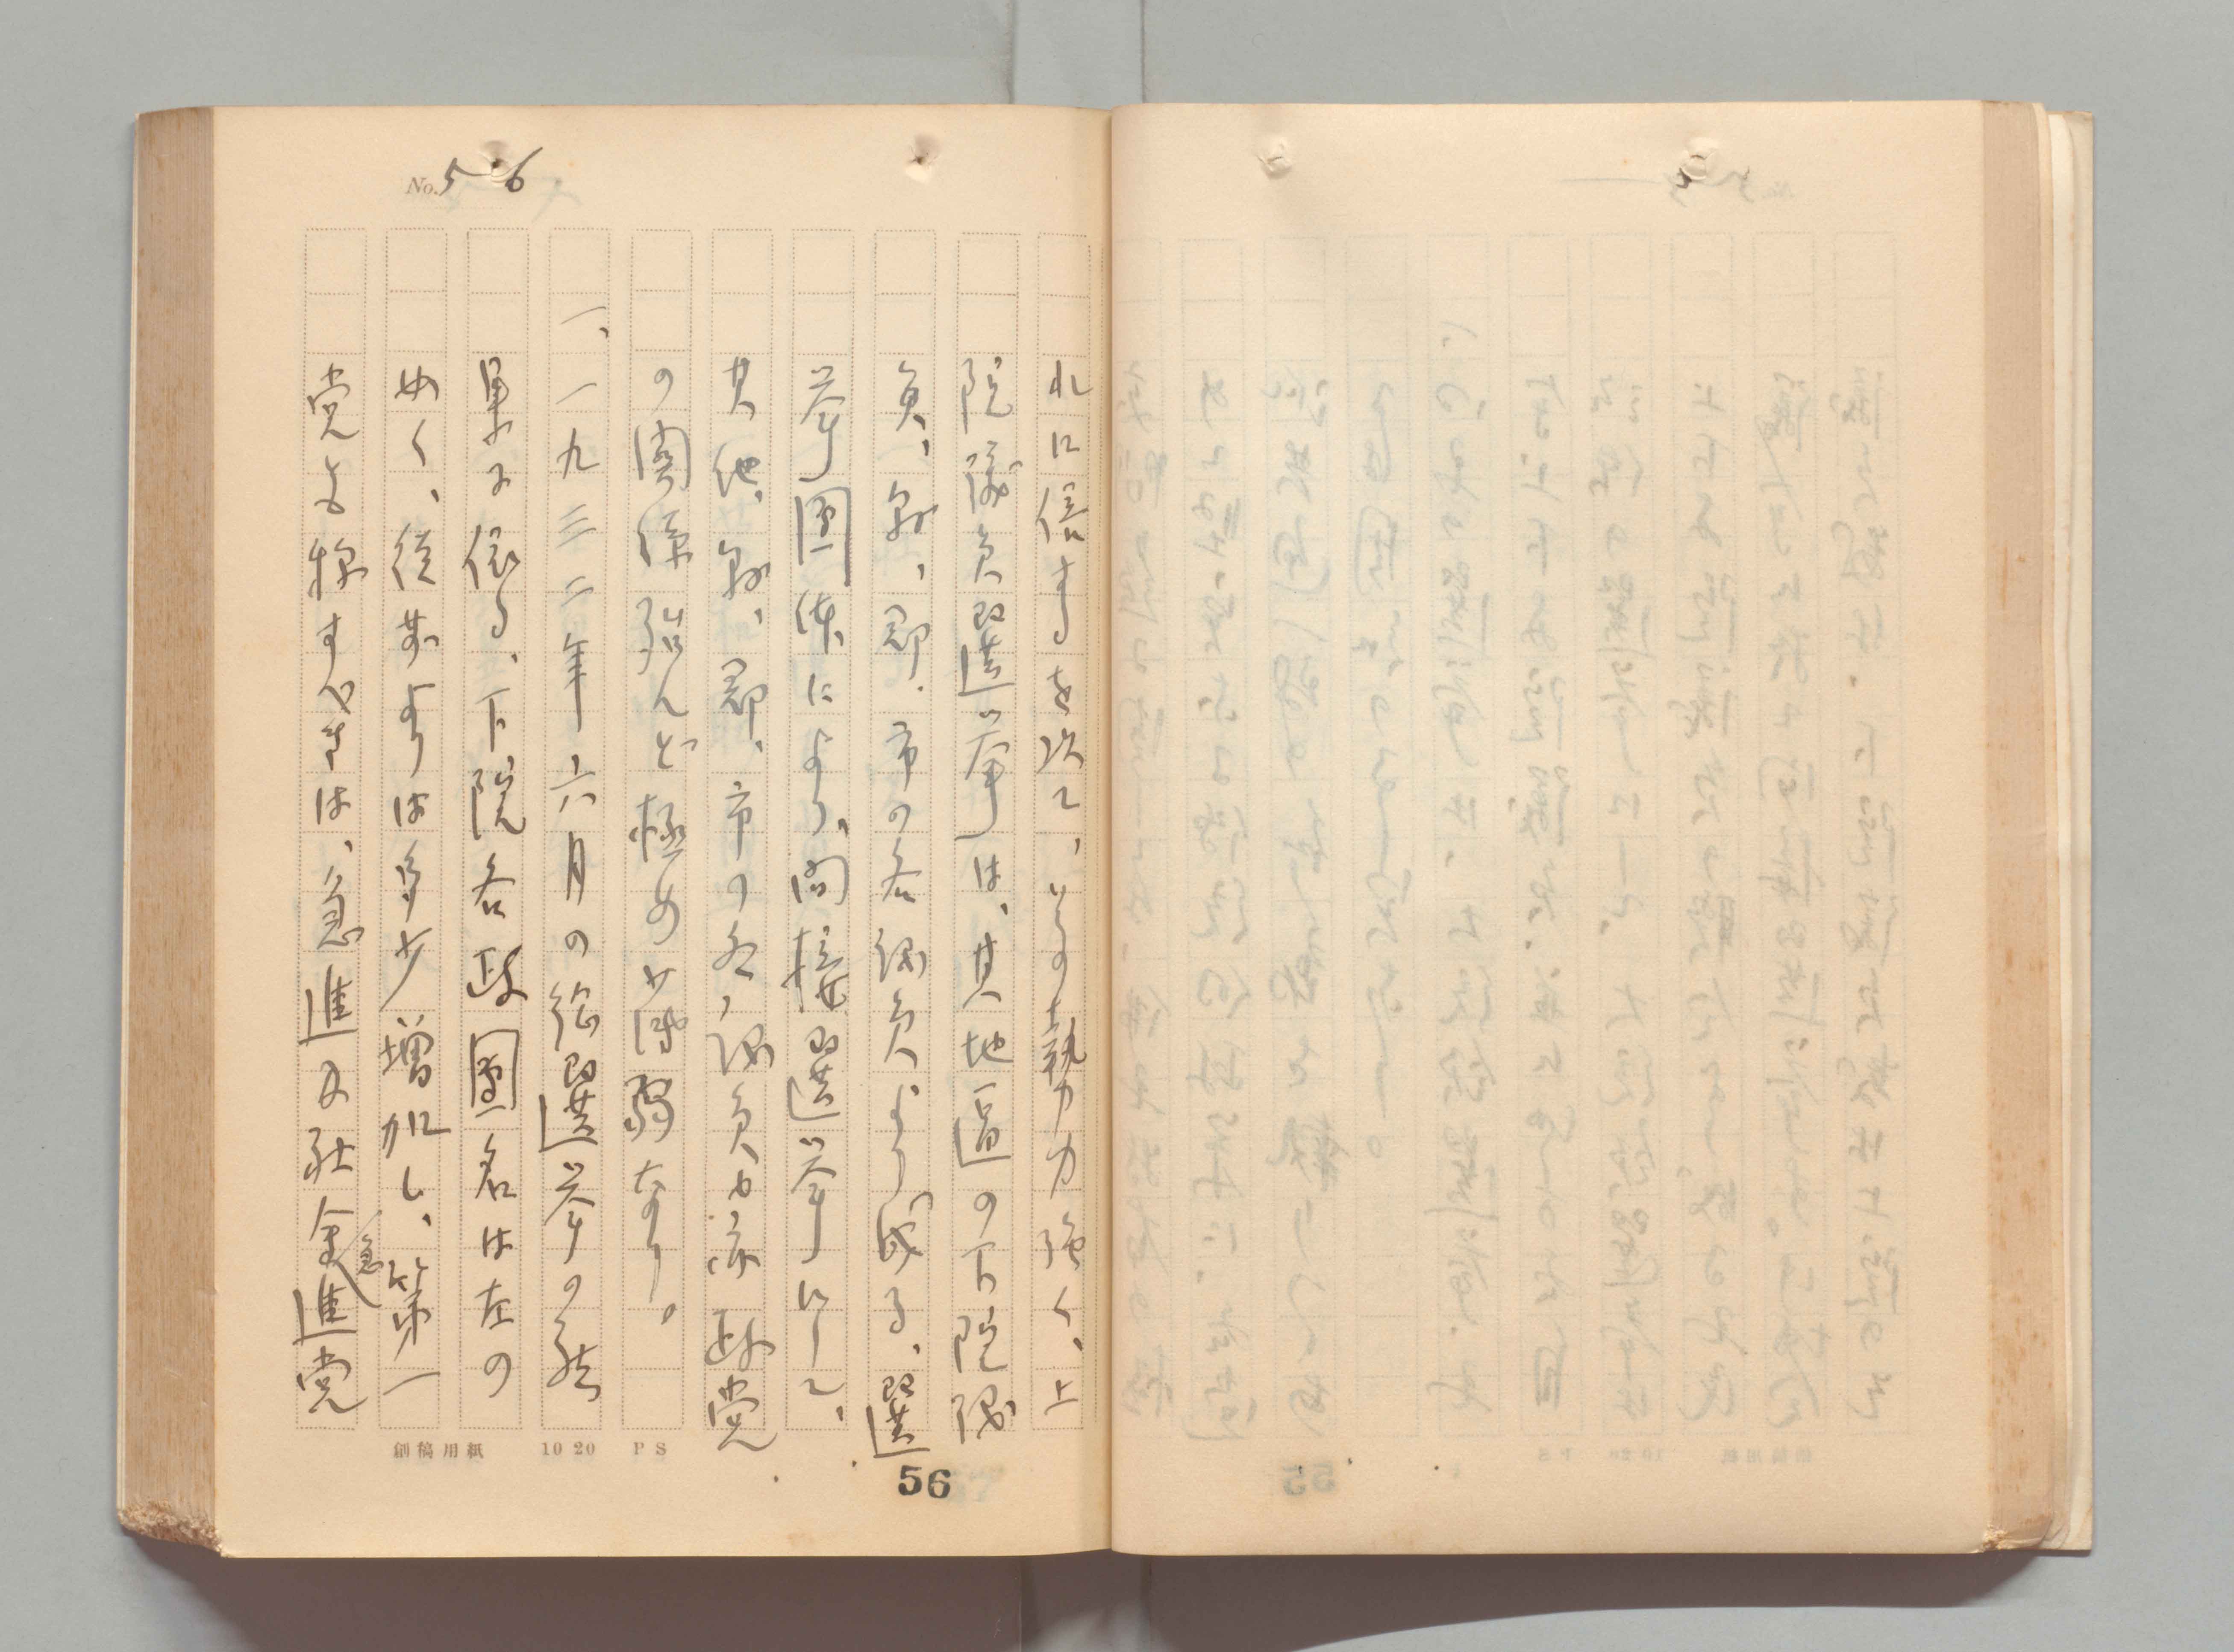 No. 56
れに倍するを以て、その勢力強く、上
院議員選挙は、其地區の下院議
員、縣、郡、市の各議員より成る、選
挙團体により、間接選挙にして、
其他、縣、郡、市の各、議員も亦政党
の関係殆んど極め薄弱なり。
一、一九三二年六月の総選挙の結
果に依る、下院各政團名は左の
如く、従前よりは多少増加し、第一
党とも称すべきは、急進及社会急進党
創稿用紙 10 20 PS
56